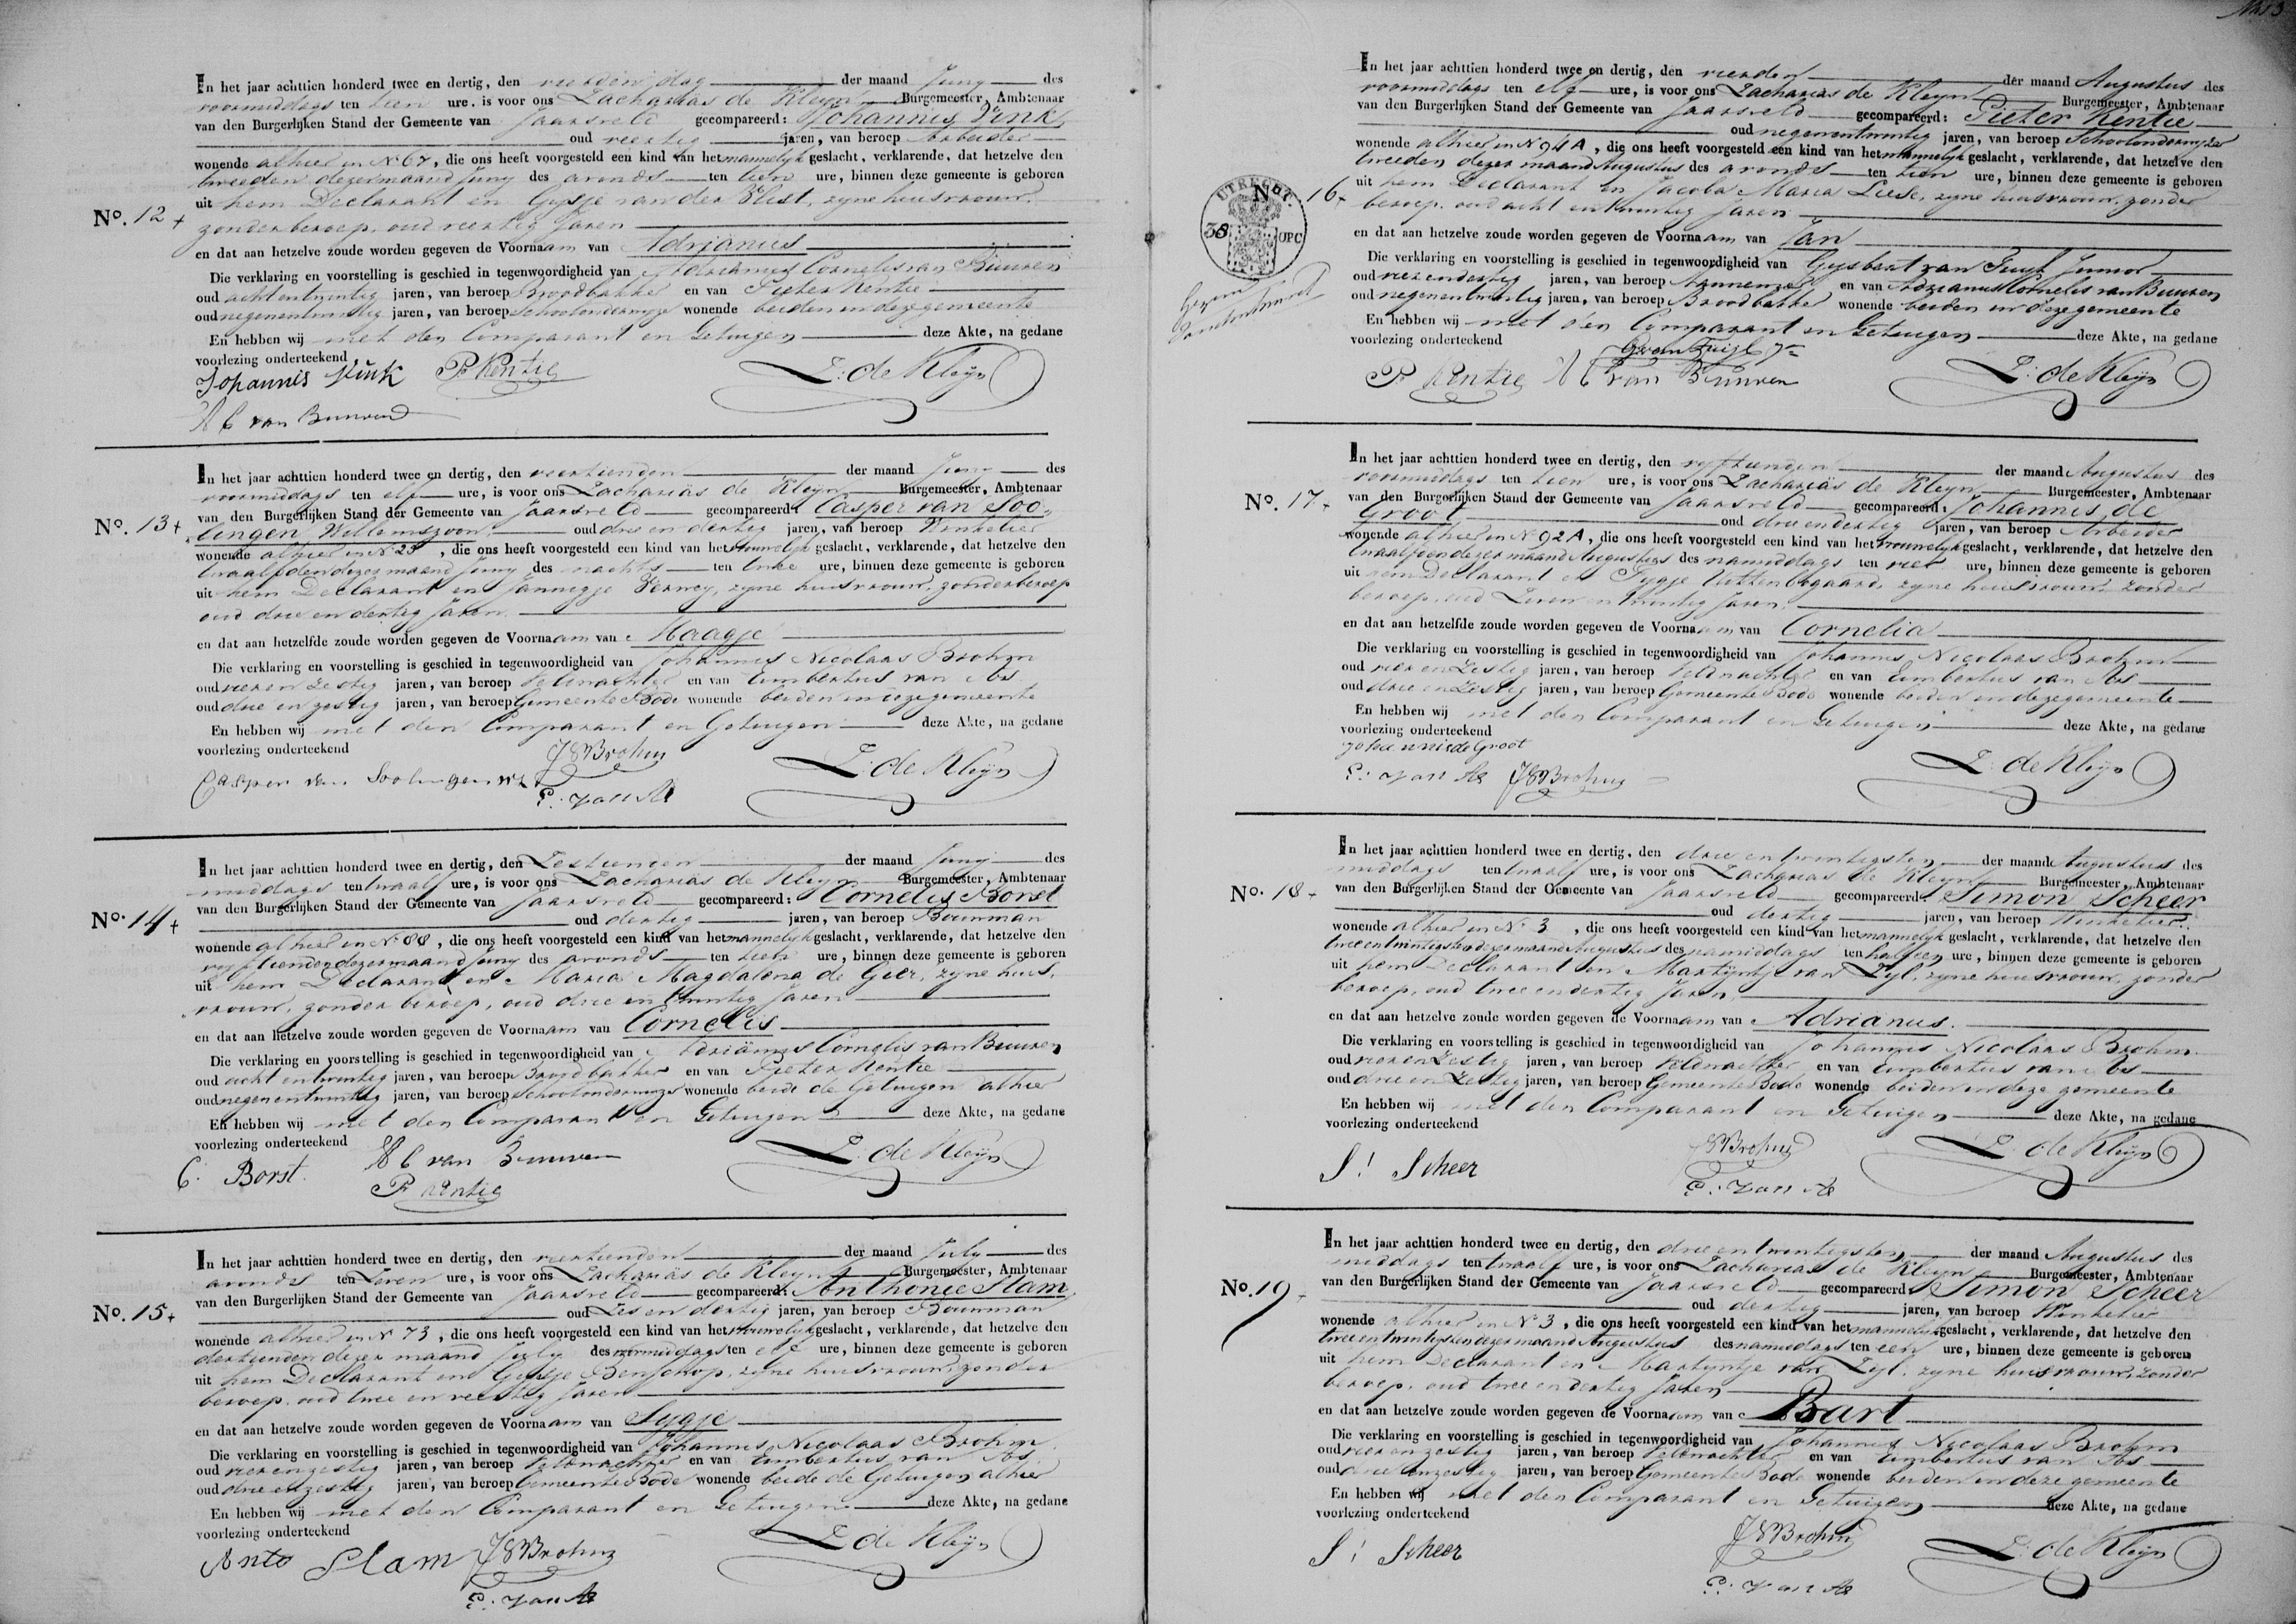 In het jaar achttien honderd twee en dertig, den vierden dag der maand Juny des
voormiddags ten tien ure, is voor ons Zacharias de Kleyn Burgemeester, Ambtenaar
van den Burgerlijken Stand der Gemeente van Jaarsveld gecompareerd: Johannis Vink
oud veertig jaren, van beroep Arbeider
wonende alhier in No 67, die ons heeft voorgesteld een kind van het mannelyk geslacht, verklarende, dat hetzelve den
tweeden dezer maand Juny des avonds ten tien ure, binnen deze gemeente is geboren
uit hem Declarant en Gysje van der Vlist, zyne huisvrouw,
No. 12 +
zonder beroep, oud veertig Jaren
en dat aan hetzelve zoude worden gegeven de Voornaam van Adrianus
Die verklaring en voorstelling is geschied in tegenwoordigheid van Adrianus Cornelis van Buuren
oud acht en twintig jaren, van beroep Broodbakker en van Pieter Kentie
oud negenentwintig jaren, van beroep Schoolonderwyzer wonende beiden in deze gemeente
En hebben wij met den Comparant en Getuigen deze Akte, na gedane
voorlezing onderteekend
Johannis Vink P Kentie Z: de Kleijn
A C van Buuren
In het jaar achttien honderd twee en dertig, den veertienden der maand Juny des
voormiddags ten elf ure, is voor ons Zacharias de Kleyn Burgemeester, Ambtenaar
van den Burgerlijken Stand der Gemeente van Jaarsveld gecompareerd: Casper van Soo-
No. 13 +
lingen Willemszoon oud drie en dertig jaren, van beroep Winkelier
wonende alhier in No 25, die ons heeft voorgesteld een kind van het vrouwelyk geslacht, verklarende, dat hetzelve den
twaalfden dezer maand Juny des nachts ten twee ure, binnen deze gemeente is geboren
uit hem Declarant en Jannigje Verwey, zyne huisvrouw, zonder beroep
oud drie en dertig Jaren
en dat aan hetzelfde zoude worden gegeven de Voornaam van Maagje
Die verklaring en voorstelling is geschied in tegenwoordigheid van Johannis Nicolaas Brohm
oud vier en zestig jaren, van beroep Veldwachter en van Embertus van As
oud drie en zestig jaren, van beroep Gemeente Bode wonende beiden in deze gemeente
En hebben wij met den Comparant en Getuigen deze Akte, na gedane
voorlezing onderteekend
Casper van Soolingen Wz JNBrohm Z: de Kleijn
E: van As
In het jaar achttien honderd twee en dertig, den Zestienden der maand Juny des
middags ten twaalf ure, is voor ons Zacharias de Kleyn Burgemeester, Ambtenaar
van den Burgerlijken Stand der Gemeente van Jaarsveld gecompareerd: Cornelis Borst
No. 14 +
oud dertig jaren, van beroep Bouwman
wonende alhier in No 88, die ons heeft voorgesteld een kind van het mannelyk geslacht, verklarende, dat hetzelve den
vyftienden dezer maand Juny des avonds ten tien ure, binnen deze gemeente is geboren
uit hem Declarant en Maria Magdalena de Gier, zyne huis-
vrouw, zonder beroep, oud drie en twintig Jaren
en dat aan hetzelve zoude worden gegeven de Voornaam van Cornelis
Die verklaring en voorstelling is geschied in tegenwoordigheid van Adrianus Cornelis van Buuren
oud acht en twintig jaren, van beroep Broodbakker en van Pieter Kentie
oud negenentwintig jaren, van beroep Schoolonderwyzer wonende beide de Getuigen alhier
En hebben wij met den Comparant en Getuigen deze Akte, na gedane
voorlezing onderteekend
C: Borst. A C van Buuren Z: de Kleijn
P Kentie
In het jaar achttien honderd twee en dertig, den veertienden der maand July des
avonds ten Zeven ure, is voor ons Zacharias de Kleyn Burgemeester, Ambtenaar
van den Burgerlijken Stand der Gemeente van Jaarsveld gecompareerd: Anthonie Stam
No. 15 +
oud Zes en dertig jaren, van beroep Bouwman
wonende alhier in No 73, die ons heeft voorgesteld een kind van het vrouwelyk geslacht, verklarende, dat hetzelve den
dertienden dezer maand July des voormiddags ten elf ure, binnen deze gemeente is geboren
uit hem Declarant en Geertje Benschop, zyne huisvrouw, zonder
beroep, oud twee en veertig Jaren
en dat aan hetzelve zoude worden gegeven de Voornaam van Sygje
Die verklaring en voorstelling is geschied in tegenwoordigheid van Johannis Nicolaas Brohm
oud vier en zestig jaren, van beroep Veldwachter en van Embertus van As
oud drie en zestig jaren, van beroep Gemeente Bode wonende beide de Getuigen alhier
En hebben wij met den Comparant en Getuigen deze Akte, na gedane
voorlezing onderteekend
Anto Stam JNBrohm Z de Kleijn
E: van As
In het jaar achttien honderd twee en dertig, den vierden der maand Augustus des
voormiddags ten elf ure, is voor ons Zacharias de Kleyn Burgemeester, Ambtenaar
van den Burgerlijken Stand der Gemeente van Jaarsveld gecompareerd: Pieter Kentie
oud negenentwintig jaren, van beroep Schoolonderwyzer
wonende alhier in No 94 A, die ons heeft voorgesteld een kind van het mannelyk geslacht, verklarende, dat hetzelve den
tweeden dezer maand Augustus des avonds ten tien ure, binnen deze gemeente is geboren
UTRECHT
38 OPC
No. 16 +
uit hem Declarant en Jacoba Maria Leese, zyne huisvrouw, zonder
beroep, oud acht en twintig Jaren
en dat aan hetzelve zoude worden gegeven de Voornaam van Jan
Die verklaring en voorstelling is geschied in tegenwoordigheid van Gysbert van Tuyl Junior
oud vierendertig jaren, van beroep en van Adrianus Cornelis van Buuren
oud negenentwintig jaren, van beroep Broodbakker wonende beiden in deze gemeente
En hebben wij met den Comparant en Getuigen deze Akte, na gedane
voorlezing onderteekend
G van Tuijl Jr
P Kentie A C van Buuren Z: de Kleijn
In het jaar achttien honderd twee en dertig, den vyftienden der maand Augustus des
voormiddags ten tien ure, is voor ons Zacharias de Kleyn Burgemeester, Ambtenaar
No. 17 +
van den Burgerlijken Stand der Gemeente van Jaarsveld gecompareerd: Johannis de
Groot oud drie en dertig jaren, van beroep Arbeider
wonende alhier in No 92 A, die ons heeft voorgesteld een kind van het vrouwelyk geslacht, verklarende, dat hetzelve den
twaalfden dezer maand Augustus des namiddags ten vier ure, binnen deze gemeente is geboren
uit hem Declarant en Fygje Uittenbogaard, zyne huisvrouw, zonder
beroep, oud Zeven en twintig Jaren,
en dat aan hetzelfde zoude worden gegeven de Voornaam van Cornelia
Die verklaring en voorstelling is geschied in tegenwoordigheid van Johannis Nicolaas Brohm
oud vier en Zestig jaren, van beroep Veldwachter en van Embertus van As
oud drie en Zestig jaren, van beroep Gemeente Bode wonende beiden in deze gemeente
En hebben wij met den Comparant en Getuigen deze Akte, na gedane
voorlezing onderteekend
Johannis de Groot
E: van As JNBrohm Z: de Kleijn
In het jaar achttien honderd twee en dertig, den drie en twintigsten der maand Augustus des
middags ten twaalf ure, is voor ons Zacharias de Kleyn Burgemeester, Ambtenaar
No. 18 +
van den Burgerlijken Stand der Gemeente van Jaarsveld gecompareerd: Simon Scheer
oud dertig jaren, van beroep Winkelier
wonende alhier in No 3, die ons heeft voorgesteld een kind van het mannelyk geslacht, verklarende, dat hetzelve den
tweeentwintigsten dezer maand Augustus des namiddags ten half een ure, binnen deze gemeente is geboren
uit hem Declarant en Martyntje van Zyl, zyne huisvrouw, zonder
beroep, oud twee en dertig Jaren,
en dat aan hetzelve zoude worden gegeven de Voornaam van Adrianus.
Die verklaring en voorstelling is geschied in tegenwoordigheid van Johannis Nicolaas Brohm
oud vier en Zestig jaren, van beroep Veldwachter en van Embertus van As
oud drie en Zestig jaren, van beroep Gemeente Bode wonende beiden in deze gemeente
En hebben wij met den Comparant en Getuigen deze Akte, na gedane
voorlezing onderteekend
S: Scheer JNBrohm Z: de Kleijn
E: van As
In het jaar achttien honderd twee en dertig, den drie en twintigsten der maand Augustus des
middags ten twaalf ure, is voor ons Zacharias de Kleyn Burgemeester, Ambtenaar
No. 19 +
van den Burgerlijken Stand der Gemeente van Jaarsveld gecompareerd: Simon Scheer
oud dertig jaren, van beroep Winkelier
wonende alhier in No 3, die ons heeft voorgesteld een kind van het mannelyk geslacht, verklarende, dat hetzelve den
tweeentwintigsten dezer maand Augustus des namiddags ten een ure, binnen deze gemeente is geboren
uit hem Declarant en Martyntje van Zyl, zyne huisvrouw, zonder
beroep, oud twee en dertig Jaren
en dat aan hetzelve zoude worden gegeven de Voornaam van Bart
Die verklaring en voorstelling is geschied in tegenwoordigheid van Johannis Nicolaas Brohm
oud vier en zestig jaren, van beroep Veldwachter en van Embertus van As
oud drie en zestig jaren, van beroep Gemeente Bode wonende beiden in deze gemeente
En hebben wij met den Comparant en Getuigen deze Akte, na gedane
voorlezing onderteekend
S: Scheer JNBrohm Z: de Kleijn
E: van As